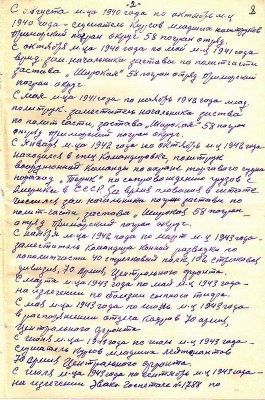 -2-
8
С августа м-ца 1940 года по октябрь м-ц
1940 года - слушатель Курсов младших политруков
Приморский погран округ 58 погран отряд.
С октября м-ца 1940 года по май м-ц 1941 года
врид. зам. начальника заставы по политчасти
застава „Широкая" 58 погран отряд Приморский
погран округ.
С мая м-ца 1941 года по ноябрь 1943 года мл.
политрук, заместитель начальника заставы
по политчасти, застава „Широкая" 58 погран
отряд Приморский погран округ.
С января м-ца 1942 года по октябрь м-ц 1942 года
находился в спец. Командировке, политрук
вооруженной команды по охране торгового судна
пароход по сопровождению грузов с
Америки в СССР, за время плавания в штате
числился зам. начальника погран заставы по
политчасти застава „Широкая" 58 погран
отряд Приморский погран округ.
С ноября м-ца 1942 года по март м-ц 1943 года -
заместитель Командира Конной разведки по
политчасти 40 стрелковый полк, 102 стрелковая
дивизия, 70 армия, Центрального фронта.
С марта м-ца 1943 года по май м-ц 1943 года -
на излечении по болезни сыпного тифа.
С мая м-ца 1943 года по июнь м-ц 1943 года -
в распоряжении отдела Кадров 70 армия,
Центрального фронта
С июня м-ца 1943 года по июль м-ц 1943 года -
слушатель Курсов младших лейтенантов
70 армия Центрального фронта.
С июля м-ца 1943 года по сентябрь м-ц 1943 года -
на излечении Эвако Госпитале № 1788 по